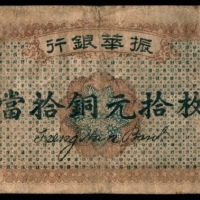 振華銀行
當拾銅元拾枚
Bank